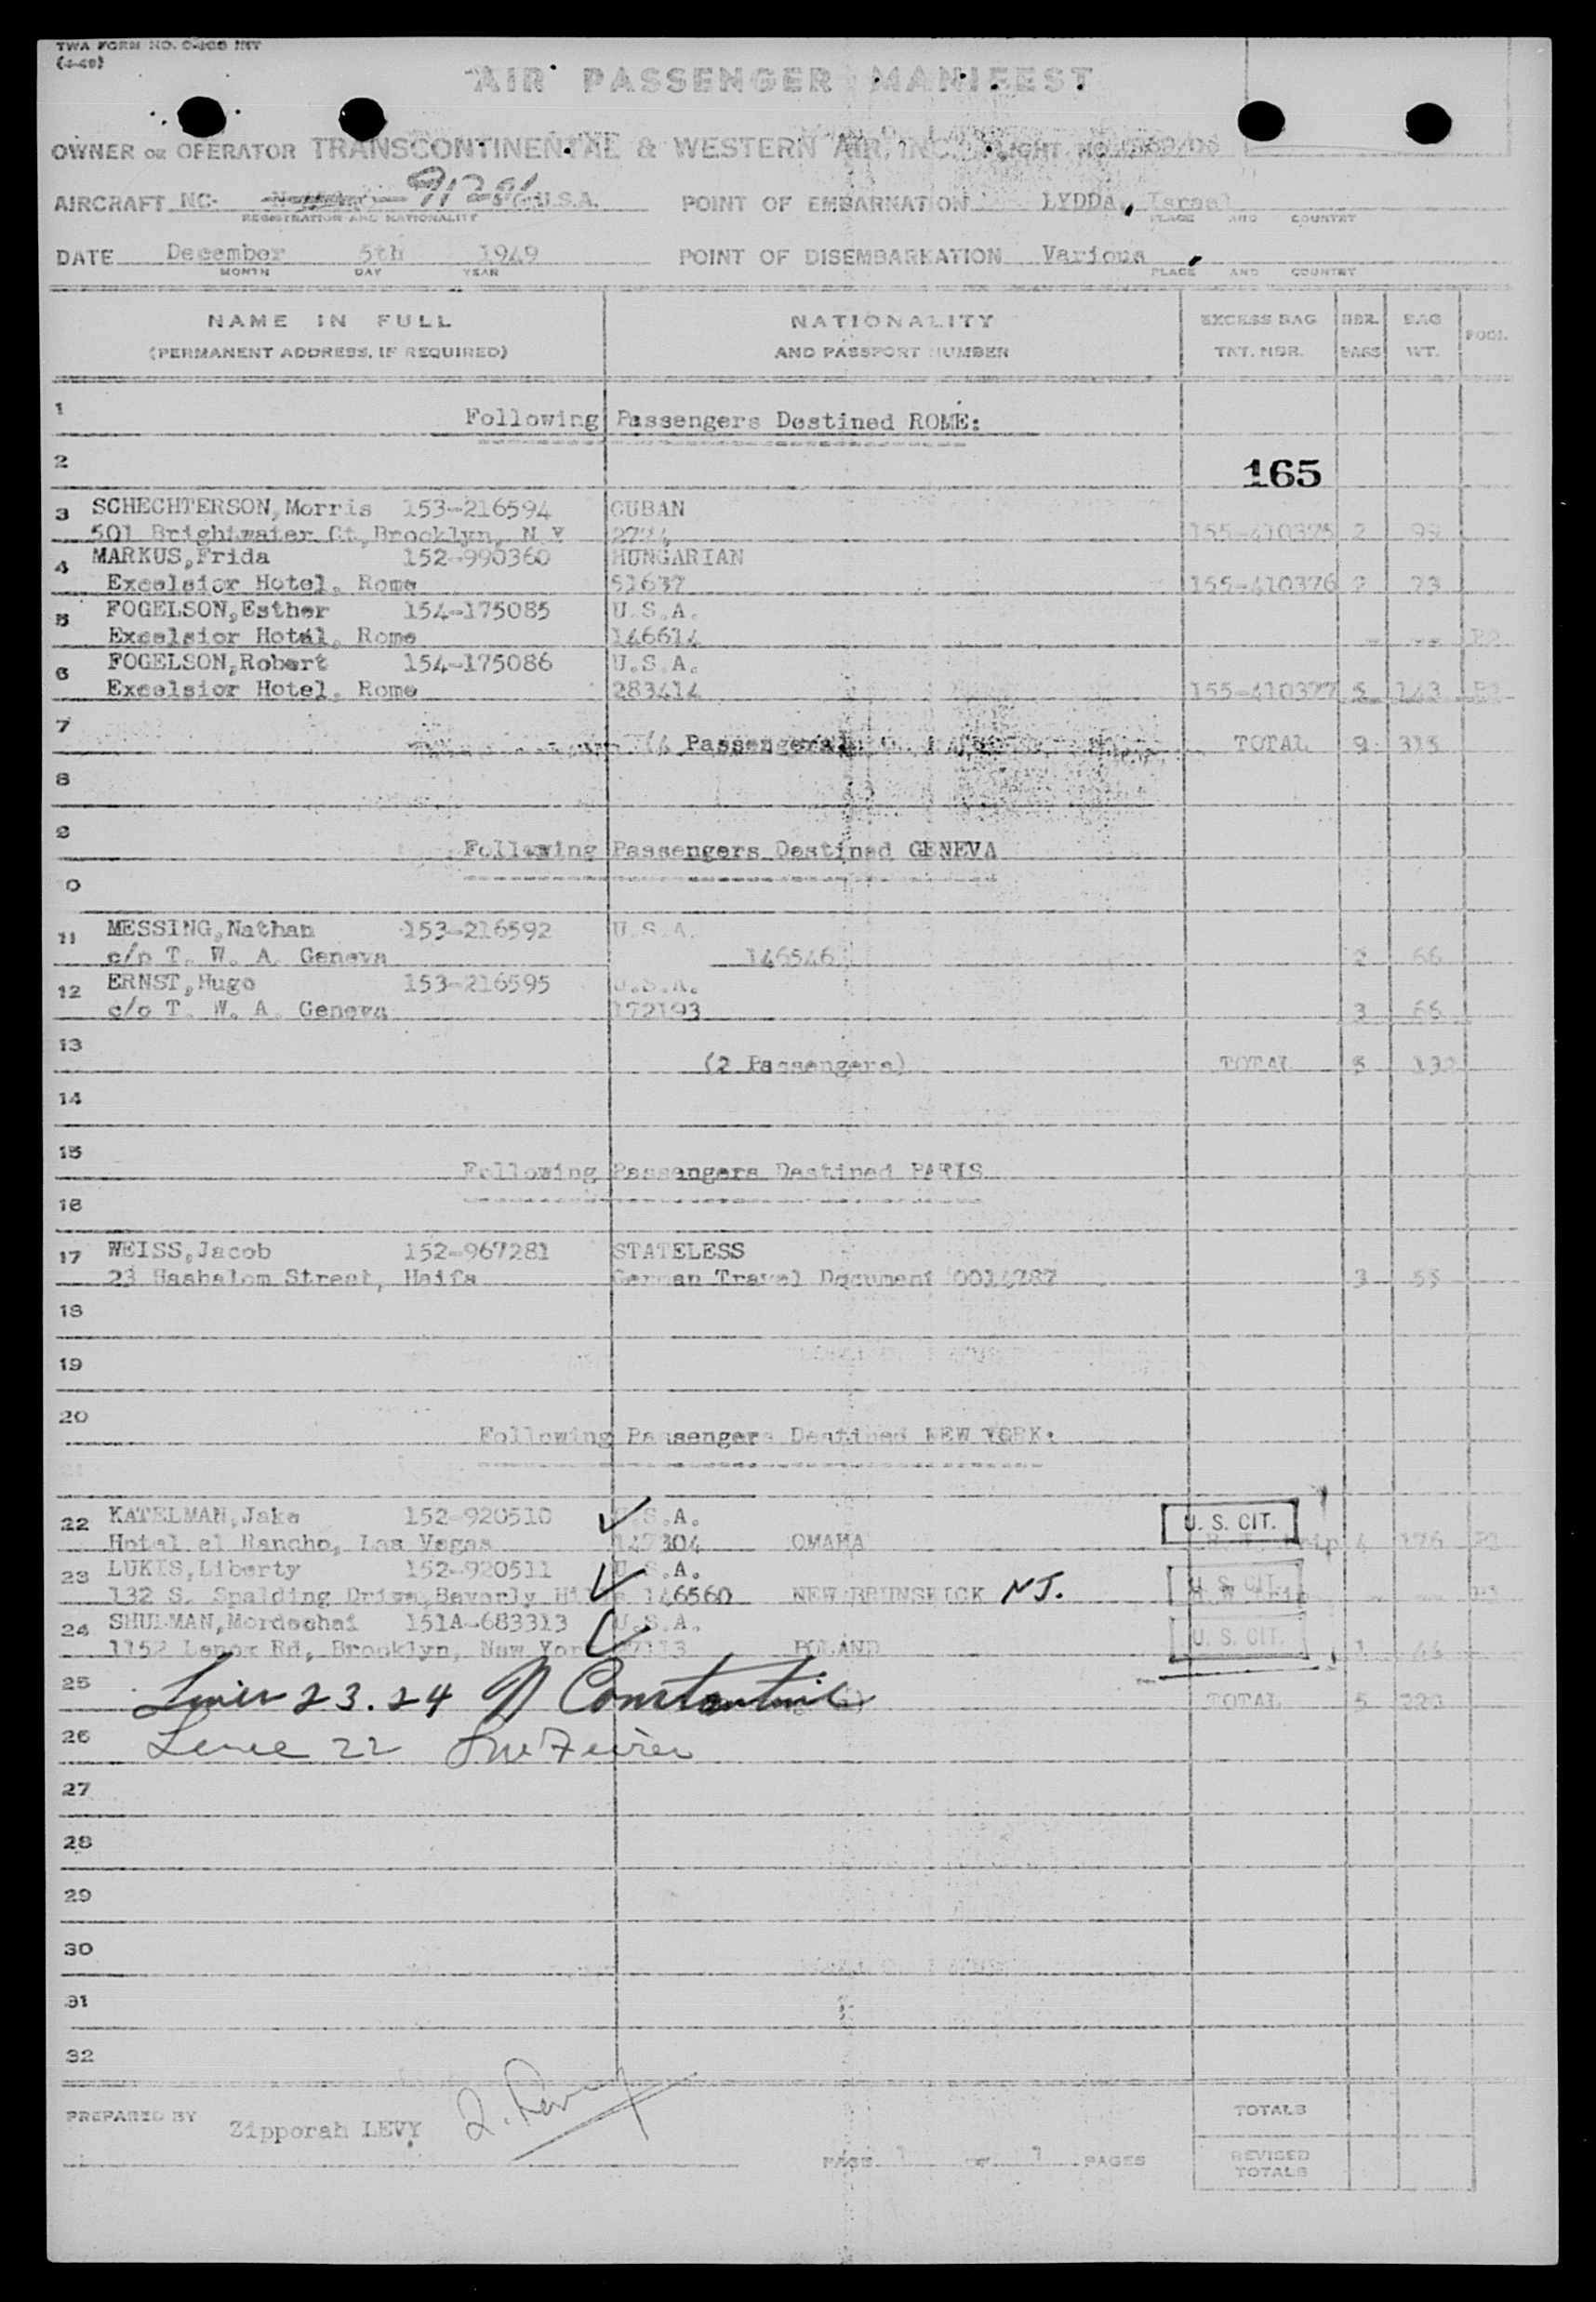 TWA FORM NO. INT
(4-49)
AIR PASSENGER MANIFEST
OWNER OR OPERATOR TRANSCONTINENTAL & WESTERN AIR, INC. FLIGHT NO.
AIRCRAFT NC- U.S.A. POINT OF EMBARKATION LYDDA, Israel
REGISTRATION AND NATIONALITY PLACE AND COUNTRY
DATE December 5th 1949 POINT OF DISEMBARKATION Various
MONTH DAY YEAR PLACE AND COUNTRY
NAME IN FULL NATIONALITY EXCESS BAG NBR. BAG POOL
(PERMANENT ADDRESS, IF REQUIRED) AND PASSPORT NUMBER TKT. NBR. BAGS WT.
1 Following Passengers Destined ROME:
2 165
3 SCHECHTERSON,Morris 153-216594 CUBAN
501 Brightwater Ct,Brooklyn, N.Y 155-410375 2 99
4 MARKUS,Frida 152-990360 HUNGARIAN
Excelsior Hotel, Rome 51637 155-410376 2 73
5 FOGELSON,Esther 154-175085 U.S.A.
Excelsior Hotel, Rome 146614 - -- P2
6 FOGELSON,Robert 154-175086 U.S.A.
Excelsior Hotel, Rome 283414 155-410377 5 143 P2
7 (4 Passengers) TOTAL 9 315
8
9 Following Passengers Destined GENEVA
0
11 MESSING,Nathan 153-216592 U.S.A.
c/o T. W. A. Geneva 146546 2 66
12 ERNST,Hugo 153-216595 U.S.A.
c/o T. W. A. Geneva 172193 3 66
13 (2 Passengers) TOTAL 5 132
14
15 Following Passengers Destined PARIS
16
17 WEISS,Jacob 152-967281 STATELESS
23 Hashalom Street, Haifa German Travel Document 0014287 3 55
18
19
20 Following Passengers Destined NEW YORK:
22 KATELMAN,Jake 152-920510 U.S.A. U. S. CIT.
Hotel el Rancho, Las Vegas 147304 OMAHA 4 176 P2
23 LUKIS,Liberty 152-920511 U.S.A. U. S. CIT.
132 S. Spalding Drive,Beverly Hills 146560 NEW BRUNSWICK NJ. - --
24 SHULMAN,Mordechai 151A-683313 U.S.A. U. S. CIT.
1152 Lenox Rd, Brooklyn, New York POLAND 1 44
25 Lines 23.24 Constantine TOTAL 5 220
26 Line 22
27
28
29
30
31
32
PREPARED BY Zipporah LEVY Z. Levy TOTALS
PAGE 1 OF 1 PAGES REVISED
TOTALS